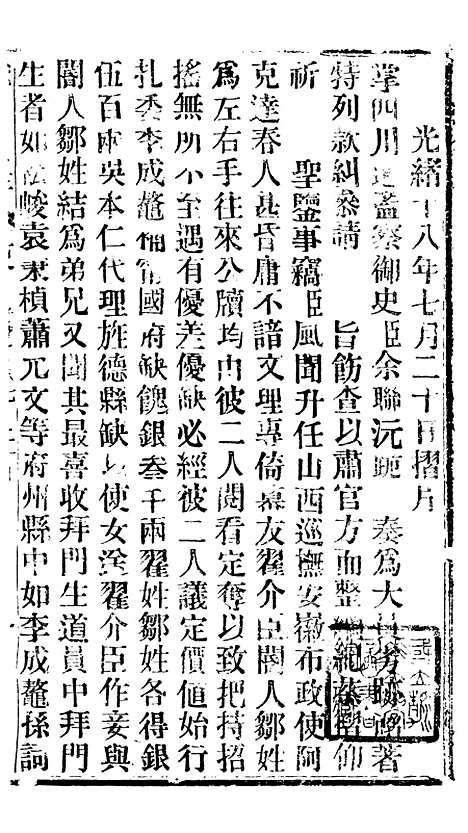 光緒十八年七月二十日摺片
掌四川道監察御史臣余聯沅跪 奏爲大員劣跡昭著
特列款糾叅請 旨飭查以肅官方而整 紀恭摺仰
祈 聖鑒事竊臣風聞升任山西巡撫安徽布政使阿
克達春人甚昏庸不諳文理專倚幕友翟介臣閽人鄒姓
爲左右手往來公牘均由彼二人閱看定奪以致把持招
搖無所不至遇有優差優缺必經彼二人議定價値始行
扎委李成鼇補甯國府缺餽銀叁千兩翟姓鄒姓各得銀
伍百兩吳本仁代理旌德縣缺以使女送翟介臣作妾與
閽人鄒姓結爲弟兄又聞其最喜收拜門生道員中拜門
生者如 峻袁秉楨蕭元文等府州縣中如李成鼇孫詞